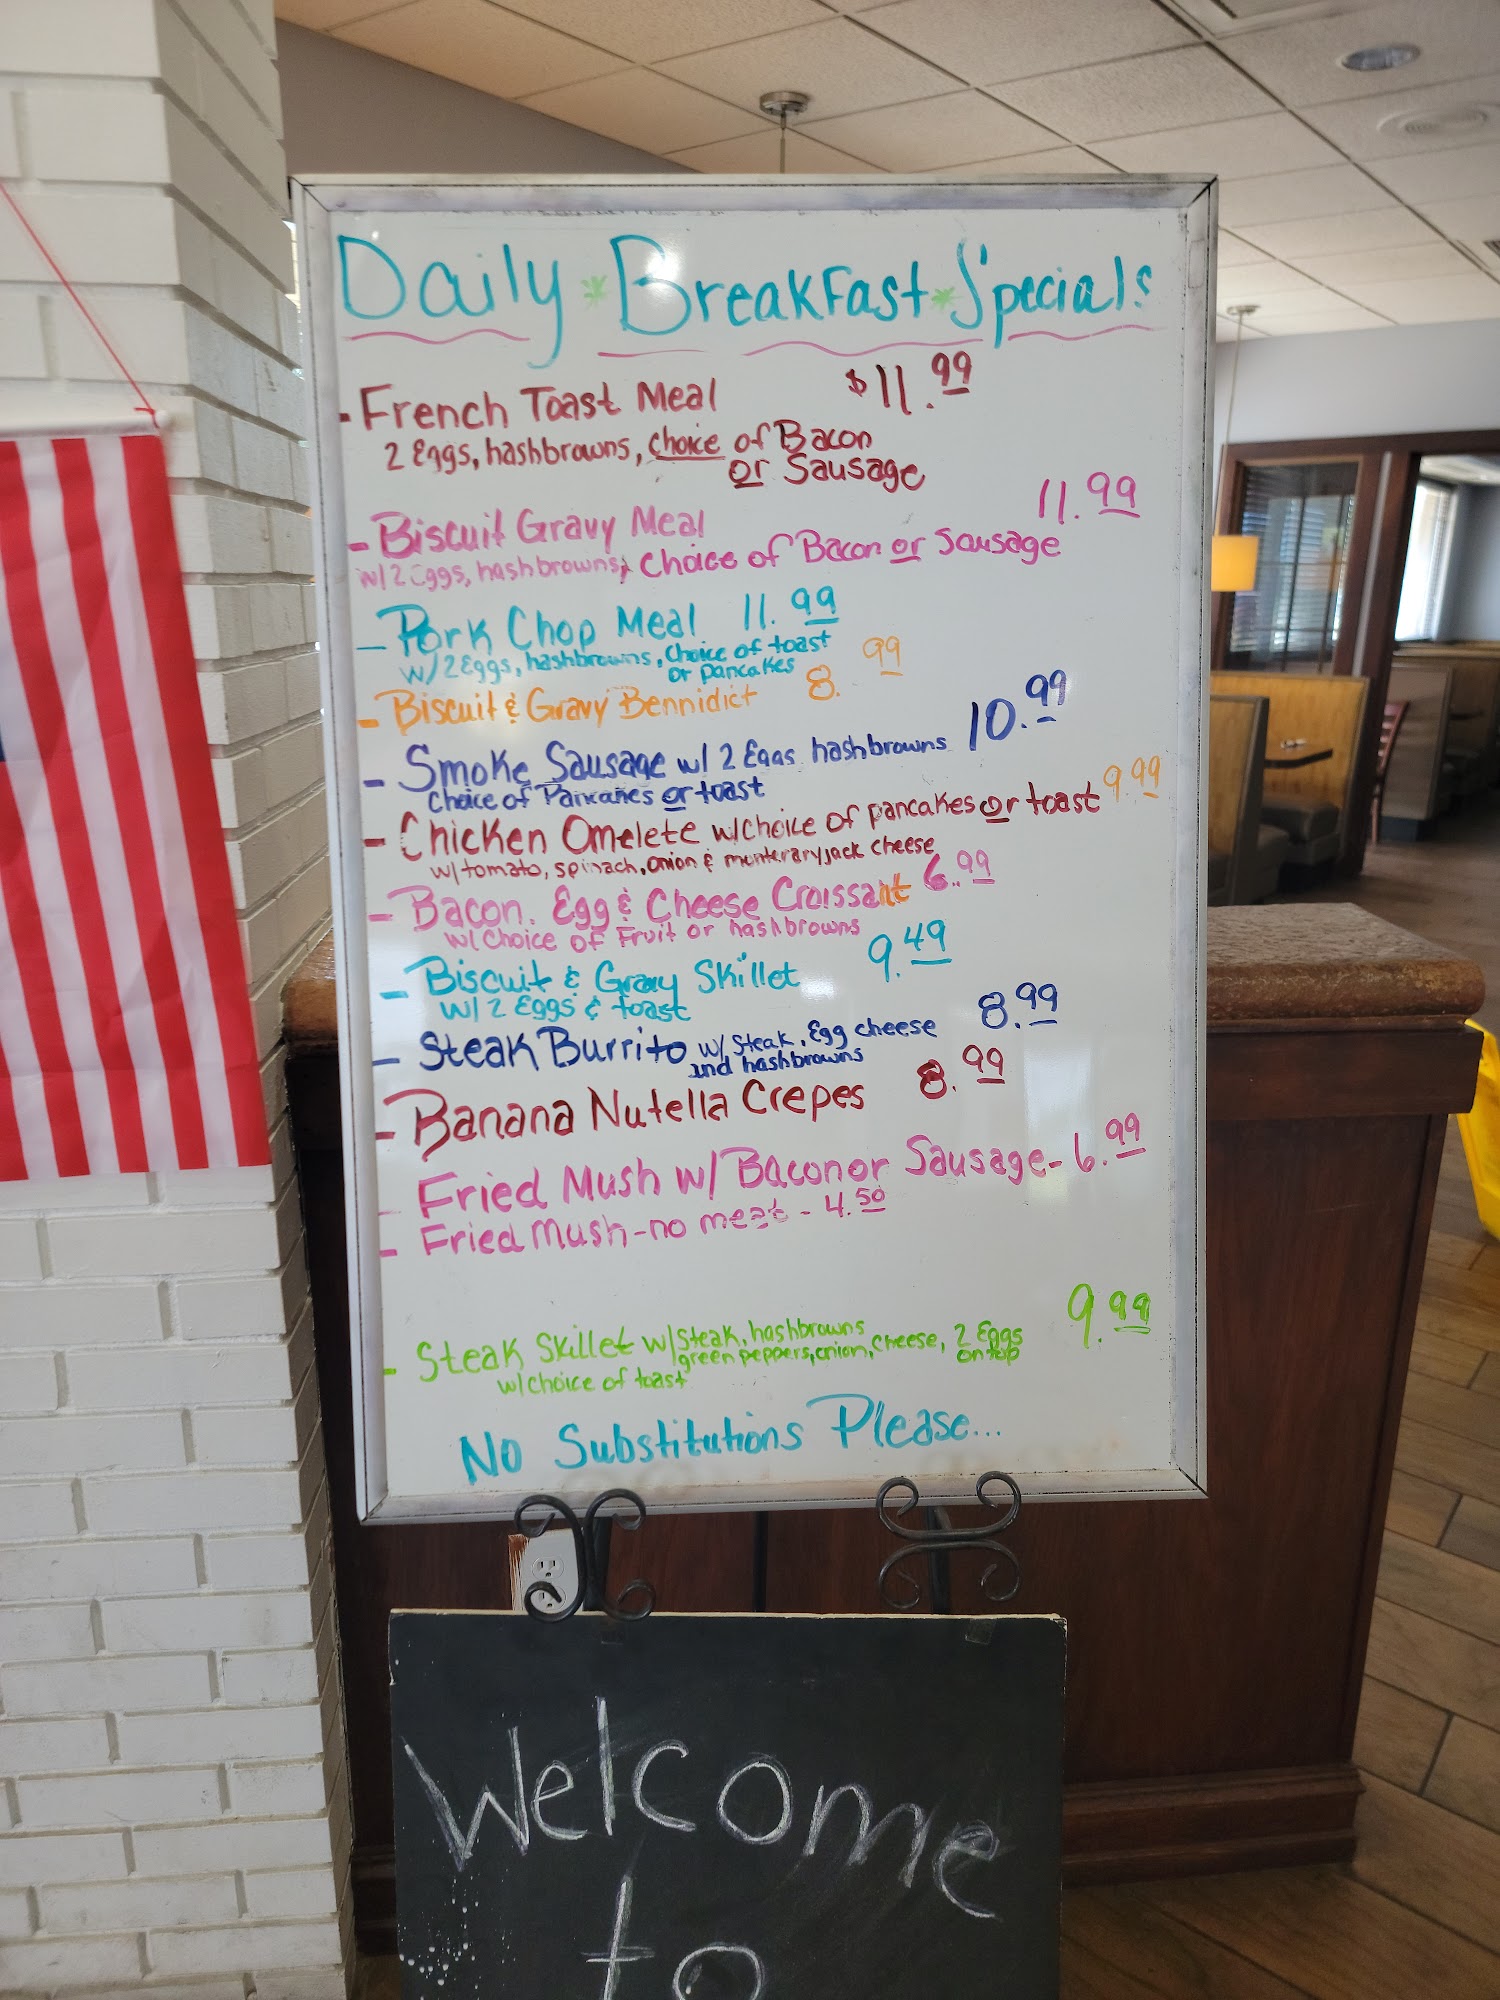 Daily * Breakfast * Specials
- French Toast Meal $11.99
2 Eggs, hashbrowns, choice of Bacon
or Sausage
- Biscuit Gravy Meal 11.99
w/ 2 Eggs, hashbrowns, Choice of Bacon or Sausage
- Pork Chop Meal 11.99
w/ 2 Eggs, hashbrowns, Choice of toast
or pancakes
- Biscuit & Gravy Bennidict 8.99
- Smoke Sausage w/ 2 Eggs hashbrowns 10.99
Choice of Pancakes or toast
- Chicken Omelete w/choice of pancakes or toast 9.99
w/tomato, spinach, onion & munteraryjack cheese
- Bacon, Egg & Cheese Croissant 6.99
w/ Choice of Fruit or hashbrowns
- Biscuit & Gravy Skillet 9.49
w/ 2 Eggs & toast
- Steak Burrito w/ Steak, Egg cheese 8.99
and hashbrowns
- Banana Nutella Crepes 8.99
- Fried Mush w/ Bacon or Sausage - 6.99
- Fried Mush - no meat - 4.50
- Steak Skillet w/ Steak, hashbrowns 9.99
green peppers, onion, cheese, 2 Eggs
on top
w/ choice of toast
No Substitutions Please...
Welcome
to